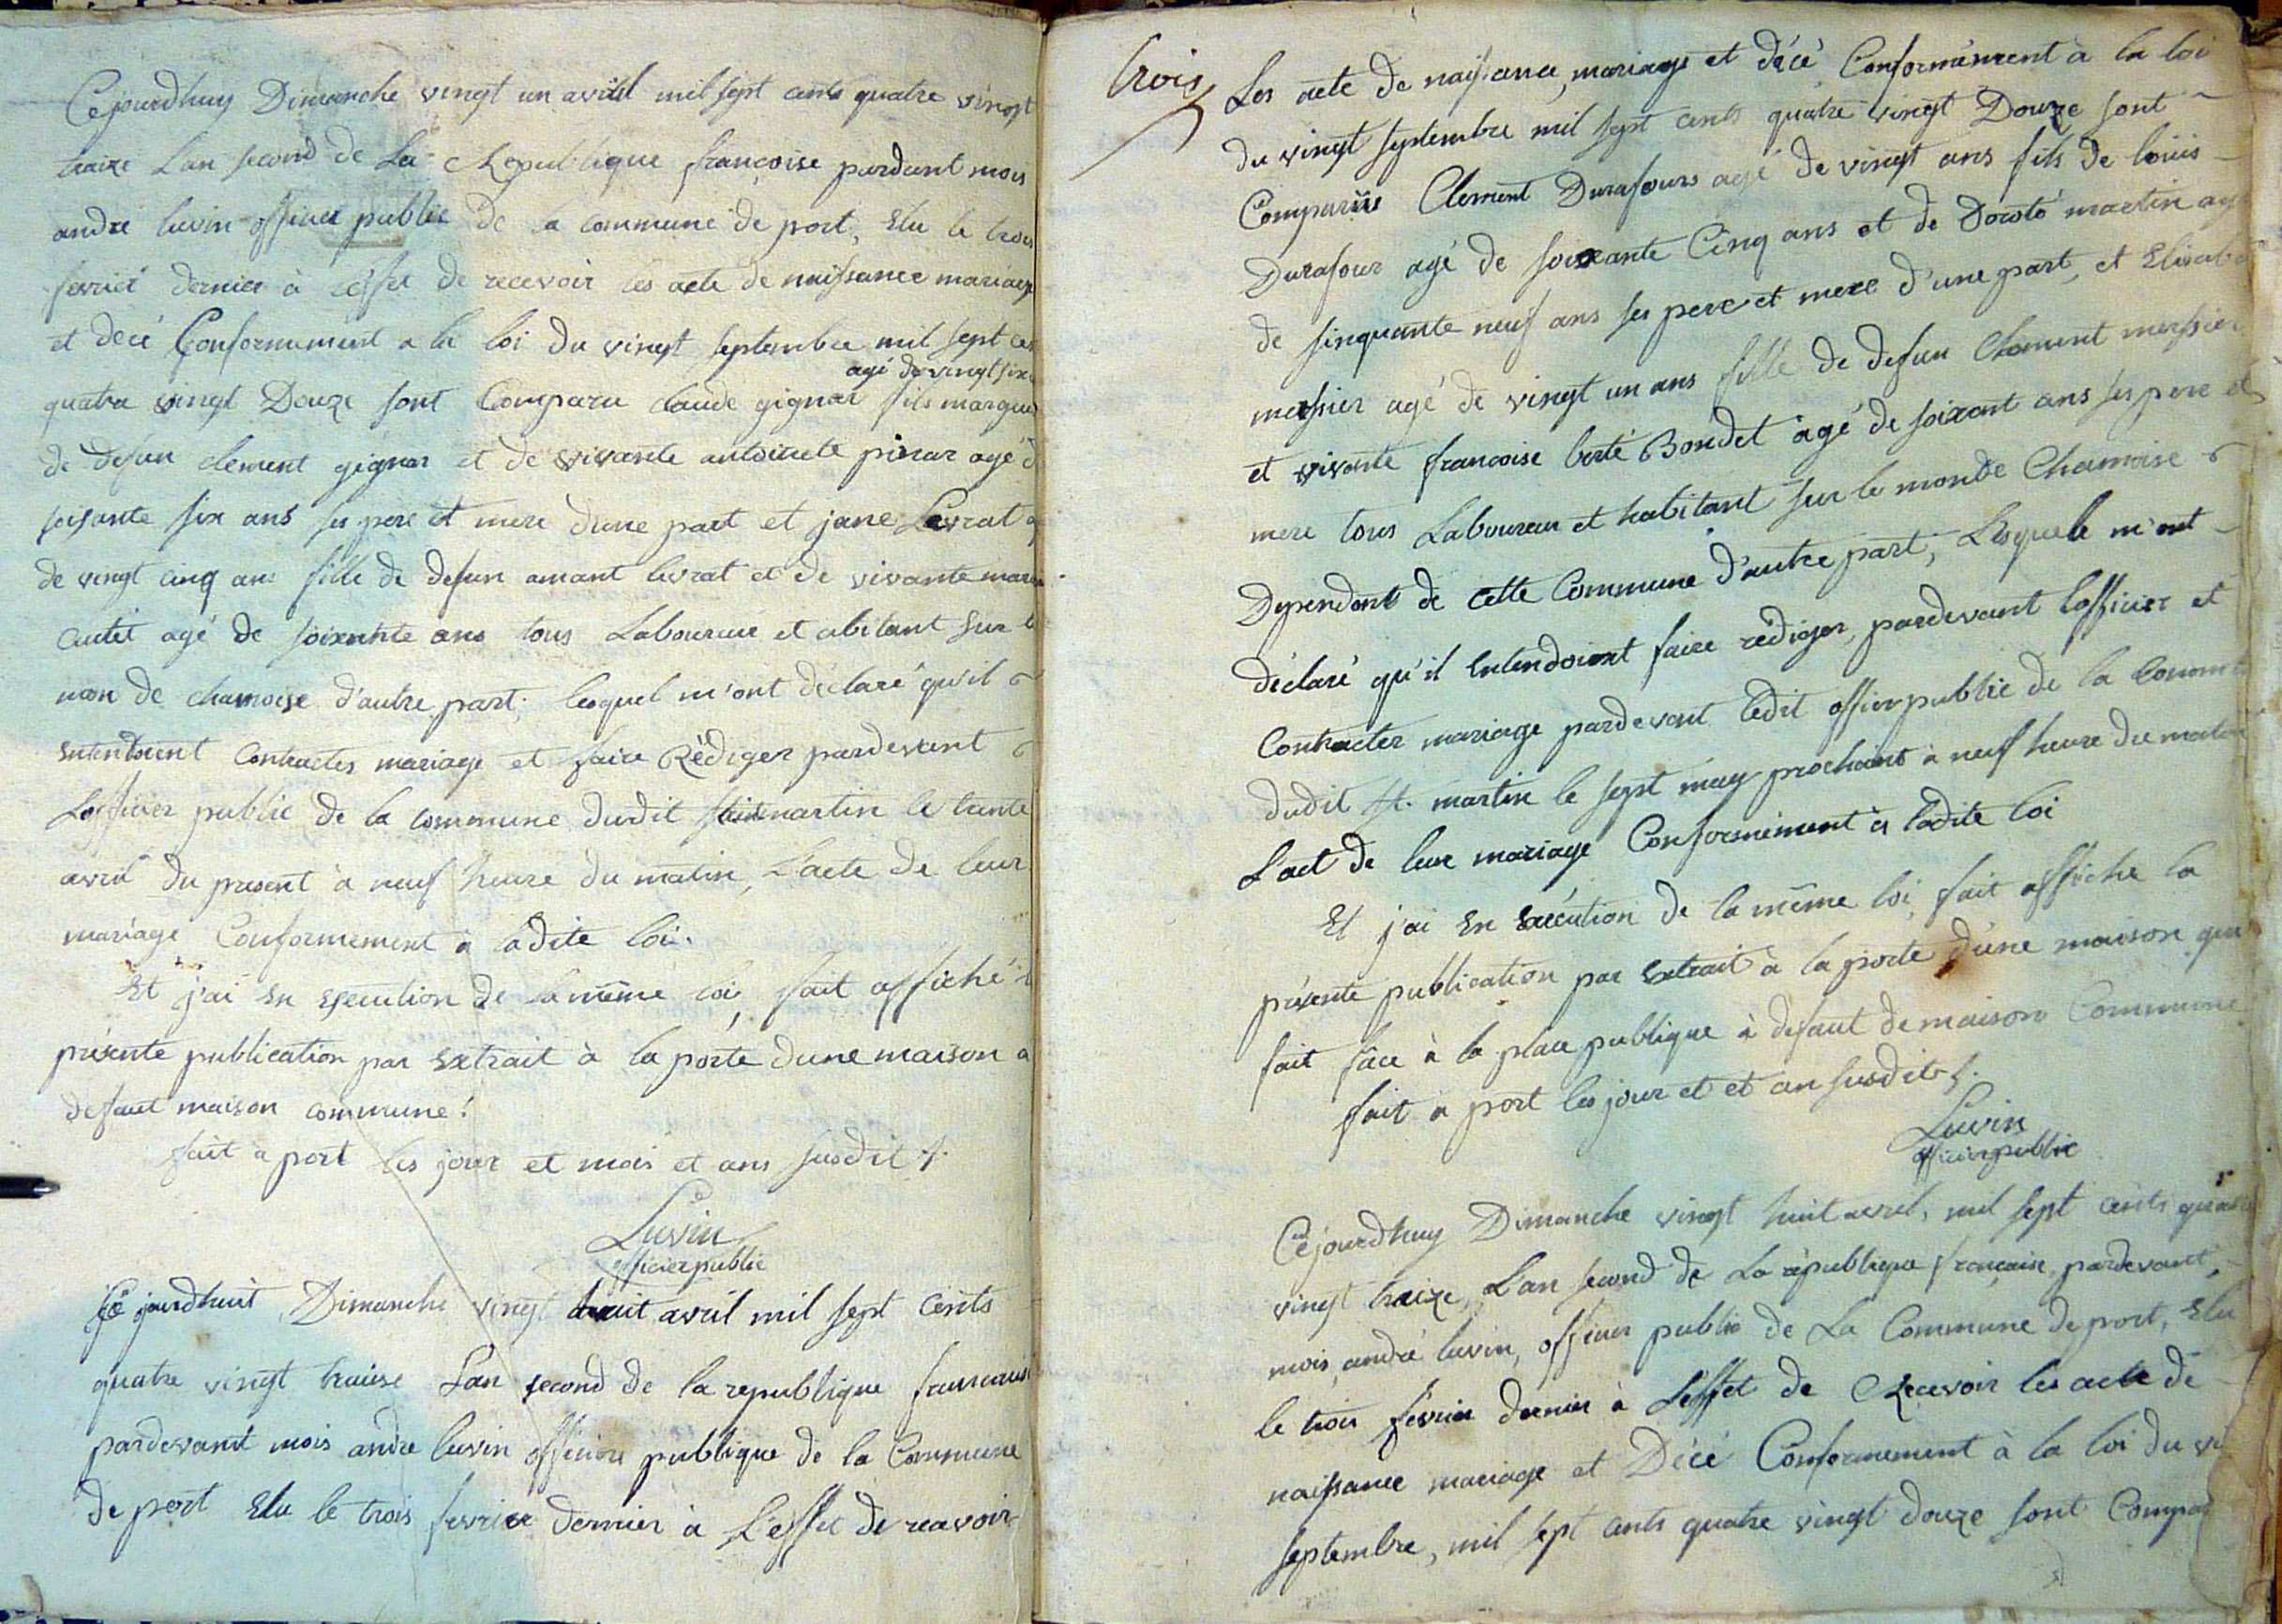 Cejourdhuy Dimanche vingt un avril mil sept cents quatre vingt
traize L'an second de La Republique françoise pardevant mois
andré luvin officier public de la commune de port, Elu le trois
fevrier dernier à l'effet de recevoir les acte de naissance mariage
et décé Conformément a la loi du vingt septembre mil sept cen
agé de vingt six
quatre vingt Douze sont Comparu claude gignar fils
de defun clement gignar et de vivante antoinete pinar agé d
soisante six ans ses pere et mere d'une part et jane Levrat
de vingt cinq ans fille de defun amant levrat et de vivante
cutet agé de soixante ans tous Laboureur et abitant sur l
mon de chamoise d'autre part, lesquel m'ont déclaré qu'il
Entendoient Contracter mariage et faire Rédiger pardevant
Lofficier public de la commune dudit saint martin le trente
avril du present à neuf heure du matin, L'acte de leur
mariage Conformement à ladite loi.
Et j'ai En Execution de la même loi, fait affiché l
présente publication par Extrait à la porte dune maison a
defaut maison commune.
fait a port les jour et mois et ans susdit
Luvin
officier public
Ce jourdhuit Dimanche vingt huit avril mil sept cents
quatre vingt traise Lan second de la republique
pardevant mois andre luvin officier publique de la Commune
de port Elu le trois fevrier dernier à L'effet de recevoir
trois
Les acte de naissance, mariage et décé Conformément à la loi
du vingt septembre mil sept cents quatre vingt Douze sont
Comparue Clement Durafours agé de vingt ans fils de louis
Durafour agé de soixante Cinq ans et de Doroté martin ag
de sinquante neuf ans ses pere et mere d'une part, et
messier agé de vingt un ans fille de defun Clement
et vivante francoise berté Bondet agé de soixant ans ses pere et
mere tous Laboureur et habitant sur le monde Chamoise
Dependant de cette Commune d'autre part, Lesquele m'ont
déclaré qu'il Entendoient faire rédiger, pardevant lofficier et
Contracter mariage pardevant ledit offier public de la Comm
dudit st. martin le sept may prochaint à neuf heure du matin
L'act de leur mariage Conformément à ladite loi
Et j'ai En Exécution de la même loi, fait affiche la
présente publication par Extrait à la porte d'une maison qui
fait face à la place publique à defaut de maison Commune
fait a port les jour et et an susdit
Luvin
officier public
Cejourdhuy Dimanche vingt huit avril, mil sept cents quatre
vingt traize, L'an second de La république francaise, pardevant,
mois, andré luvin, officier public de La Commune de port, Elu
le trois fevrier dernier à L'effet de Recevoir les acte de
naissance mariage et Décé Conformement à la loi du vi
septembre, mil sept cents quatre vingt douze sont Compar